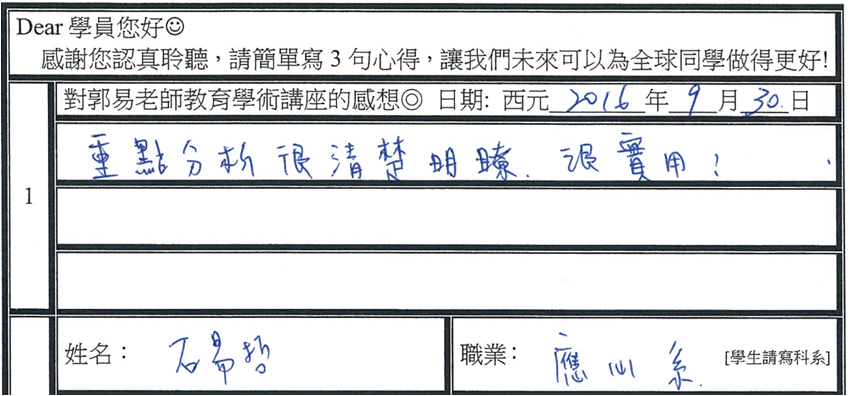 Dear 學員您好☺
感謝您認真聆聽，請簡單寫 3 句心得，讓我們未來可以為全球同學做得更好!
1
對郭易老師教育學術講座的感想◎ 日期: 西元 2016 年 9 月 30 日
重點分析很清楚明瞭. 很實用!
姓名： 石易哲
職業： 應心系. [學生請寫科系]